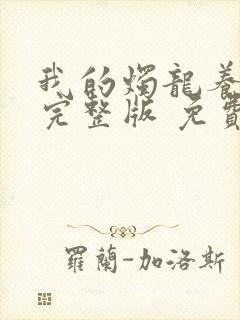 我的燭龍養
完整版 免費
羅蘭-加洛斯